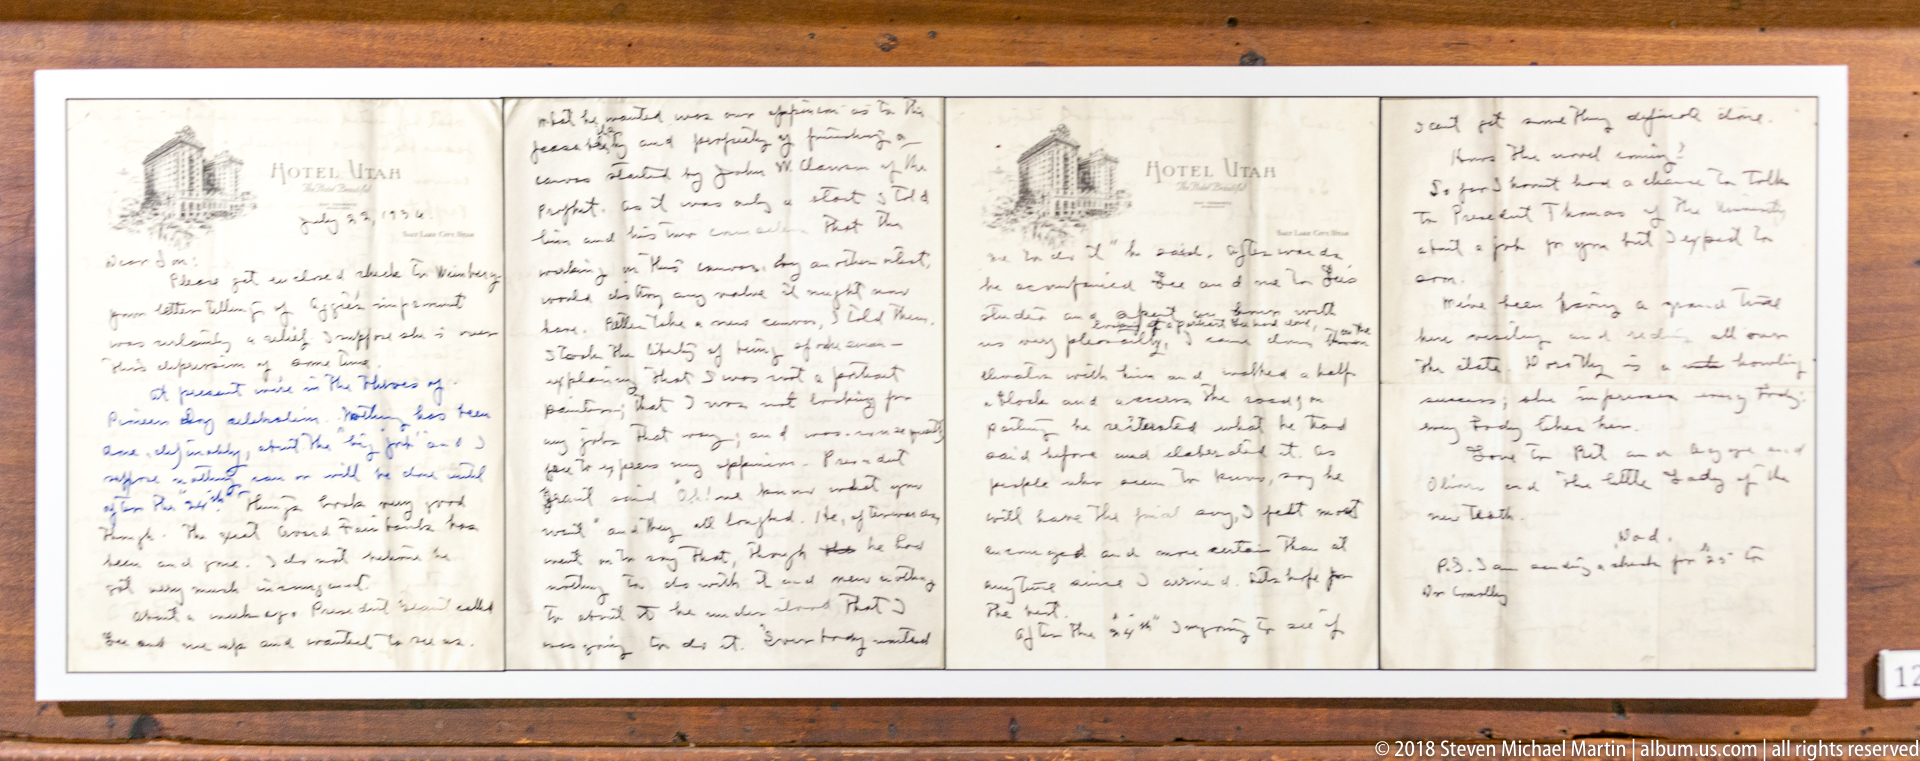 HOTEL UTAH
The Hotel Beautiful
SALT LAKE CITY, UTAH
July 22, 1936
Dear Son:
Please get enclosed check to Weinberg
your letter telling of Aggie's improvement
was certainly a relief. I suppose she is over
this depression of some time.
At present we're in the throes of
Pioneer Day celebration. Nothing has been
done, definitely, about the "big job" and I
suppose nothing can or will be done until
after the "24th". Things look very good
though. The great Avard Fairbanks has
been and gone. I do not believe he
got very much encouragement.
About a week ago President Grant called
Lee and me up and wanted to see us.
What he wanted was our oppinion as to the
and propriety of finishing a
canvas started by John W. Clawson of the
Prophet. As it was only a start I told
him and his two that the
working on this canvas, by another artist,
would distroy any value it might now
have. Better take a new canvas, I told them.
I took the liberty of being
explaining that I was not a portrait
painter; that I was not looking for
any jobs that way; and was consequently
free to express my oppinion. President
Grant said "Oh! we know what you
want" and they all laughed. He, afterwards,
went on to say that, though he had
nothing to do with it and knew nothing
about it he understood that I
was going to do it. "Everybody wanted
HOTEL UTAH
The Hotel Beautiful
SALT LAKE CITY, UTAH
me to do it" he said. Afterwards,
he acompanied Lee and me to Lee's
studio and spent an hour with
us very pleasantly, I came down
elevator with him and walked a half
block and accross the road, on
parting he reiterated what he had
said before and elaborated it. As
people who seem to know, say he
will have the final say, I felt most
encouraged and more certain than at
anytime since I arrived. Lets hope for
the best.
After the "24th" I'm going to see if
I cant get something definate done.
Hows the novel coming?
So far I havnt had a chance to talk
to President Thomas of the University
about a job for you but I expect to
soon.
We've been having a grand time
here visiting and riding all over
the state. Dorothy is a howling
success; she impresses every body:
every body likes her.
Love to Bet and Aggie and
Oliver and "the little Lady of the
new teeth.
Dad.
P.S. I am sending a check for $25 to
Dr Connolly
12
© 2018 Steven Michael Martin | album.us.com | all rights reserved